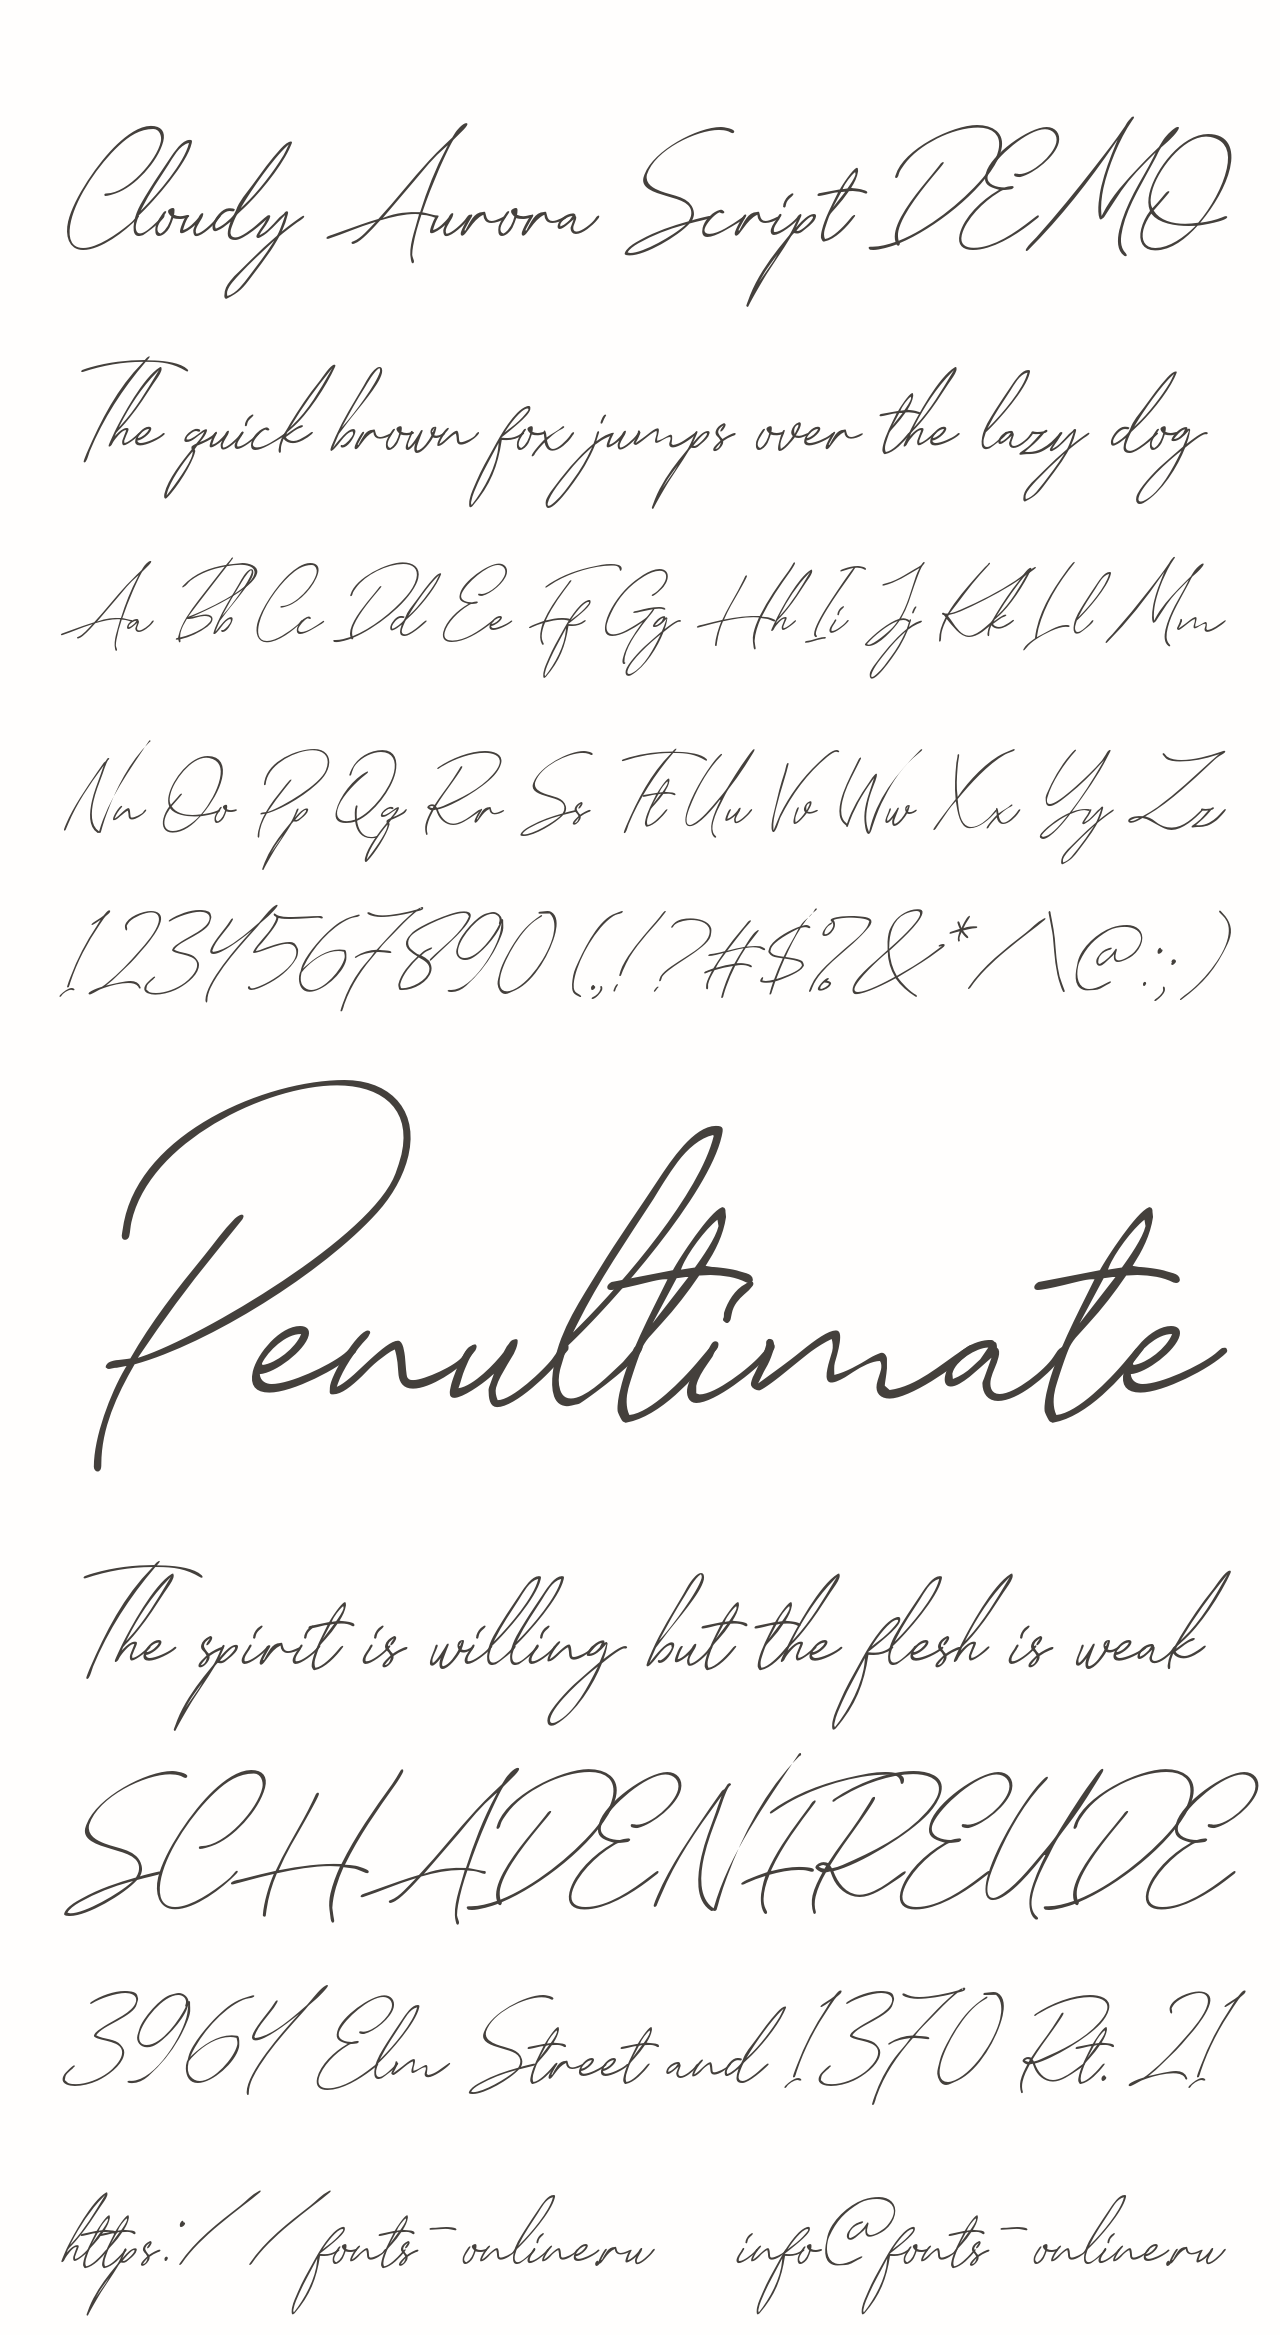 Cloudy Aurora Script DEMO
The quick brown fox jumps over the lazy dog
Aa Bb Cc Dd Ee Ff Gg Hh Ii Jj Kk Ll Mm
Nn Oo Pp Qq Rr Ss Tt Uu Vv Ww Xx Yy Zz
1234567890 (.,!?#$%&* /\@:;)
Penultimate
The spirit is willing but the flesh is weak
SCHADENFREUDE
3964 Elm Street and 1370 Rt. 21
https://fonts-online.ru info@fonts-online.ru